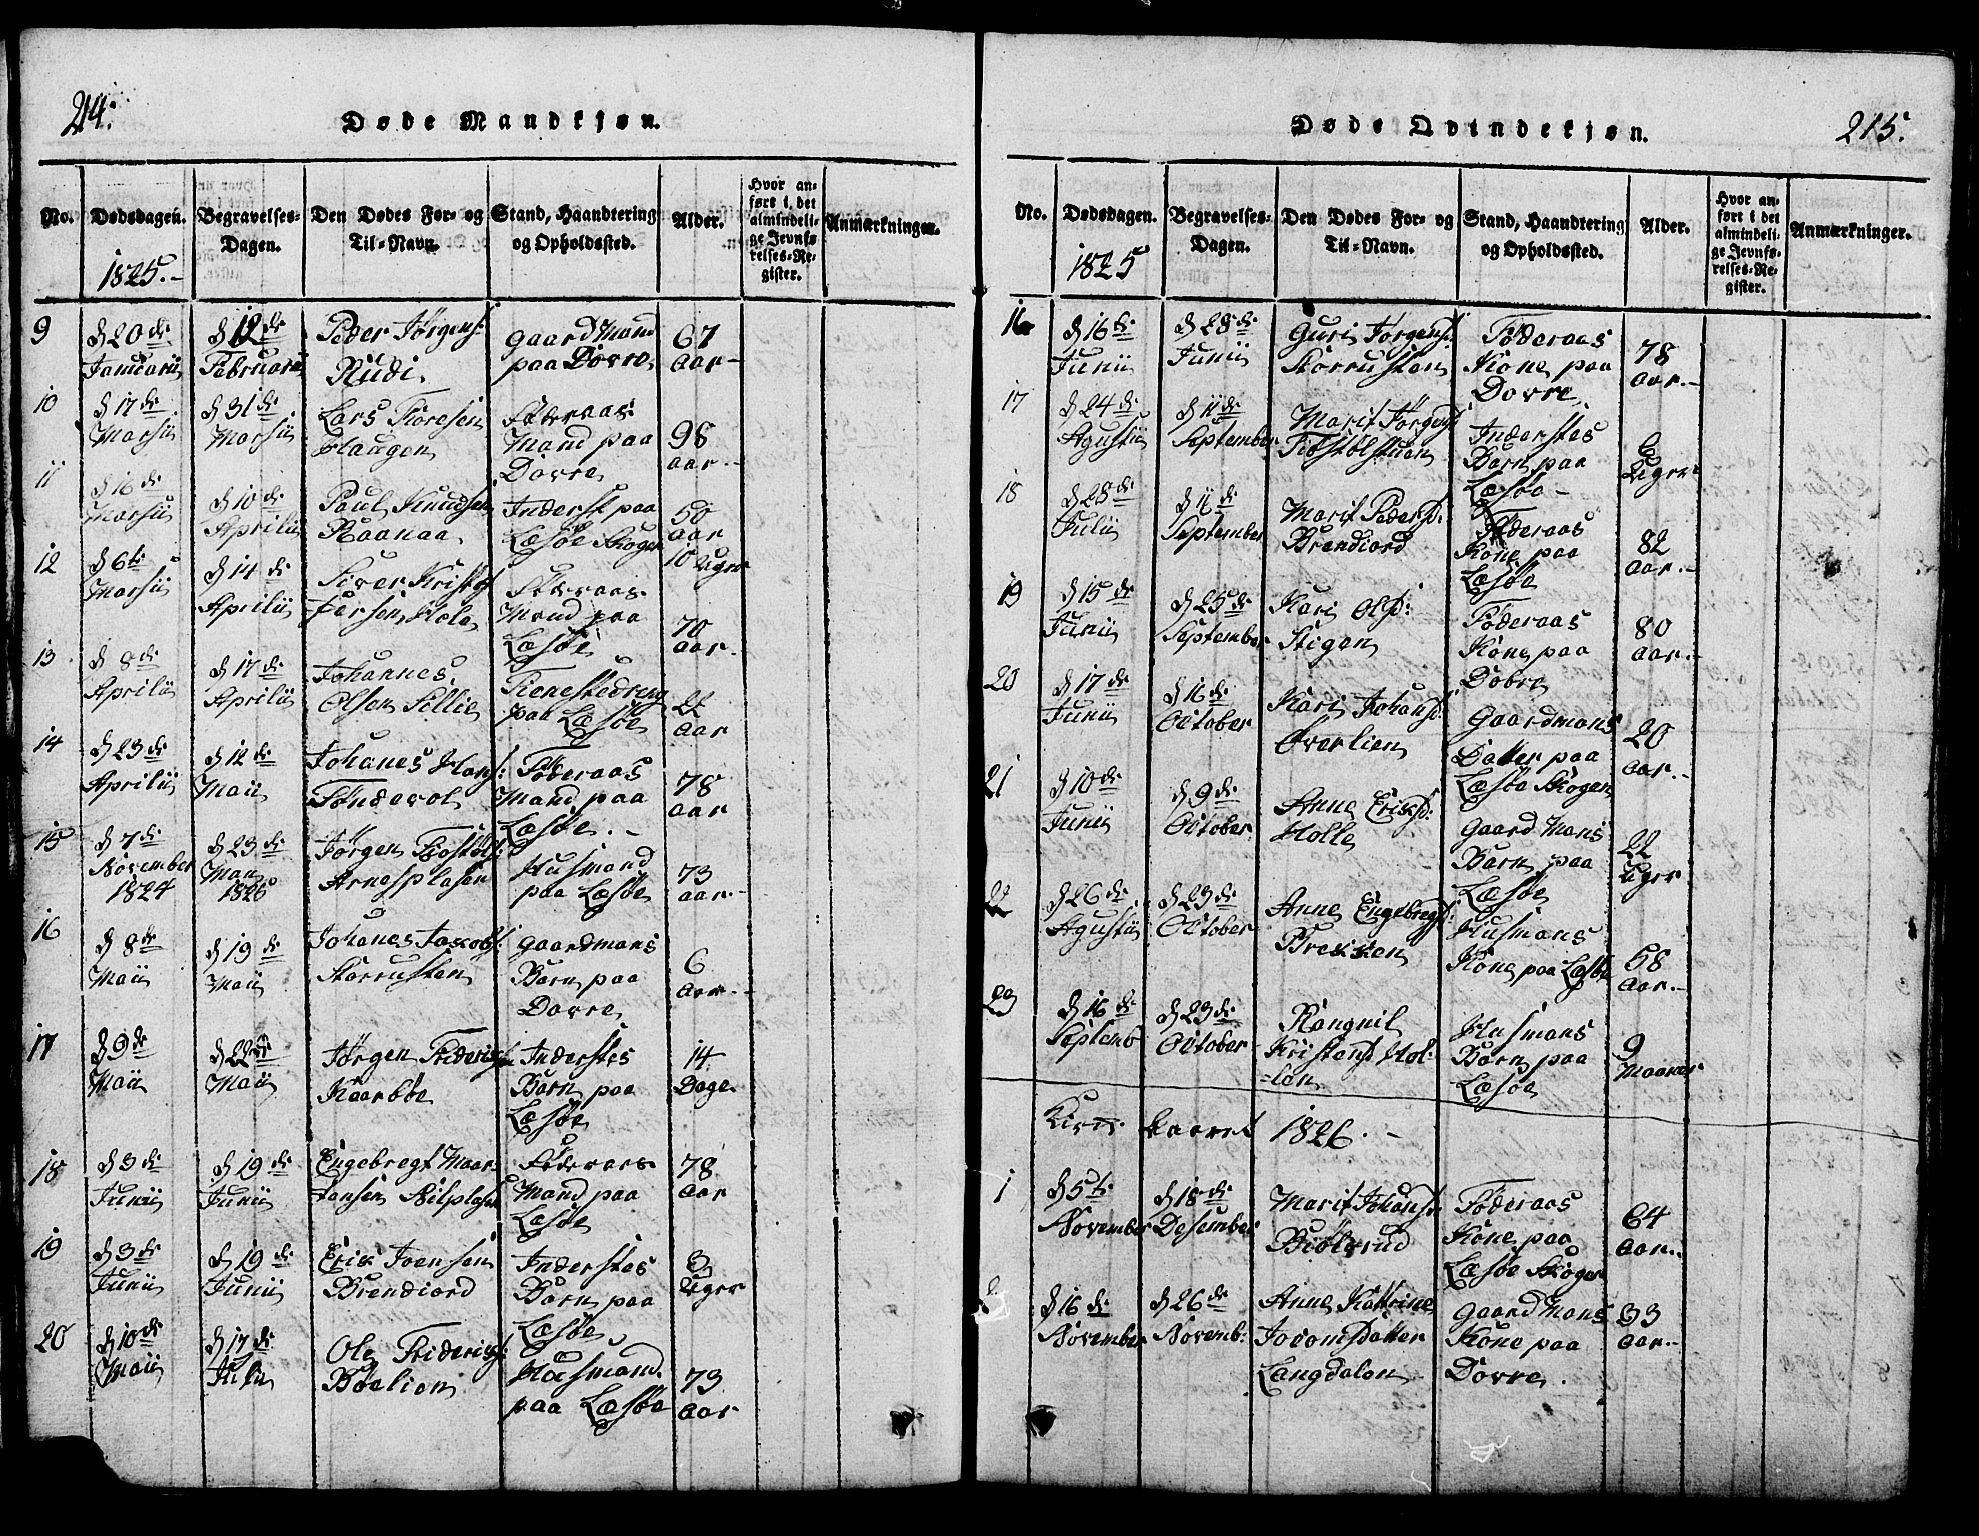 214.
Døde Mandkjøn.
No.
Dødsdagen.
1825.-
Begravelses-
Dagen.
Den Dødes For- og
Til-Navn.
Stand, Haandtering
og Opholdssted.
Alder.
Hvor an-
ført i det
almindeli-
ge Jevnfø-
relses-Re-
gister.
Anmærkninger.
9
d 20de
Januarii
d 12de
Februarii
Peder Jørgens:
Rudi.
gaardMand
paa Dovre
67
aar-
10
d 17de
Marsii
d 31de
Marsii
Lars Toresen
Haugen
Føderaas
Mand paa
Dovre
98
aar.-
11
d 16de
Marsii
d 10de
Aprilii
Paul Knudsen
Raanaa
Inderst paa
Læsøe Skogen
50
aar
10 uger
12
d 6te
Marsii
d 14de
Aprilii
Siver Kristof
fersen Hole
Føderaas
Mand paa
Læsøe
70
aar.
13
d 8de
Aprilii
d 17de
Aprilii
Johannes
Olsen Sillie
Tienestedreng
paa Læsøe
22
aar
14
d 23de
Aprilii
d 12de
Maii
Johanes Hans:
Tøndevol
Føderaas
Mand paa
Læsøe.-
78
aar
15
d 7de
November
1824
d 23de
Maii
1825
Jørgen Tiostøls:
Arnesplasen
Husmand
paa Læsøe
73
aar.-
16
d 8de
Maii
d 19de
Maii
Johanes Jacobs:
Storrusten
gaardmans
Barn paa
Dovre
6
aar.-
17
d 9de
Maii
d 22de
Maii
Jørgen Frideriks:
Kaarbøe
Inderstes
Barn paa
Læsøe
14
Dage
18
d 3de
Junii
d 19de
Junii
Engebregt Maar-
tansen Nilplasen
Føderaas
Mand paa
Læsøe
78
aar
19
d 3de
Junii
d 19de
Junii
Erik Joensen
Brendiord
Inderstes
Barn paa
Læsøe
3
uger
20
d 10de
Maii
d 17de
Ole Frideriks:
Bøelien
Husmand
paa Læsøe
73
aar
215.
Døde Qvindekjøn.
No.
Dødsdagen.
1825
Begravelses-
Dagen.
Den Dødes For- og
Til-Navn.
Stand, Haandtering
og Opholdssted.
Alder.
Hvor an-
ført i det
almindeli-
ge Jevnfø-
relses-Re-
gister.
Anmærkninger.
16
d 16de
Junii
d 28de
Junii
Guri Jørgensd:
Storrusten
Føderaas
Kone paa
Dovre
78
aar.-
17
d 24de
Agustii
d 11de
September
Marit Jørgensd
Tiostølstuen
Inderstes
Barn paa
Læsøe-
6
Uger
18
d 28de
Julii
d 11de
September
Marit Pedersd:
Brendiord
Føderaas
Kone paa
Læsøe
82
aar.-
19
d 15de
Junii
d 25de
September
Kari Olsd:
Stigen
Føderaas
Kone paa
Dobre
80
aar.-
20
d 17de
Junii
d 16de
October
Kari Johansd:
Øverlien
Gaardmans
Datter paa
Læsøe Skogen
20
aar.-
21
d 10de
Junii
d 9de
October
Anne Eriksd:
Holle
gaard Mans
Barn paa
Læsøe
22
uger
22
d 26de
Agustii
d 23de
October
Anne Engebregtsd:
Brekken
Husmans
Kone paa Læsøe
58
aar.-
23
d 16de
Septemb
d 23de
October
Rangnil
Kristensd Hol-
-len
Husmans
Barn paa
Læsøe
9
Maaner
Kirke-aaret 1826.-
1
d 5te
November
d 18de
Desember
Marit Johansd:
Biølerud
Føderaas
Kone paa
Læsøe Skogen
64
aar.
2
d 16de
November
d 26de
Novemb:
Anne Kattrine
JoramsDatter
Langdalen
gaard Mans
Kone paa
Dovre.
33
aar.-